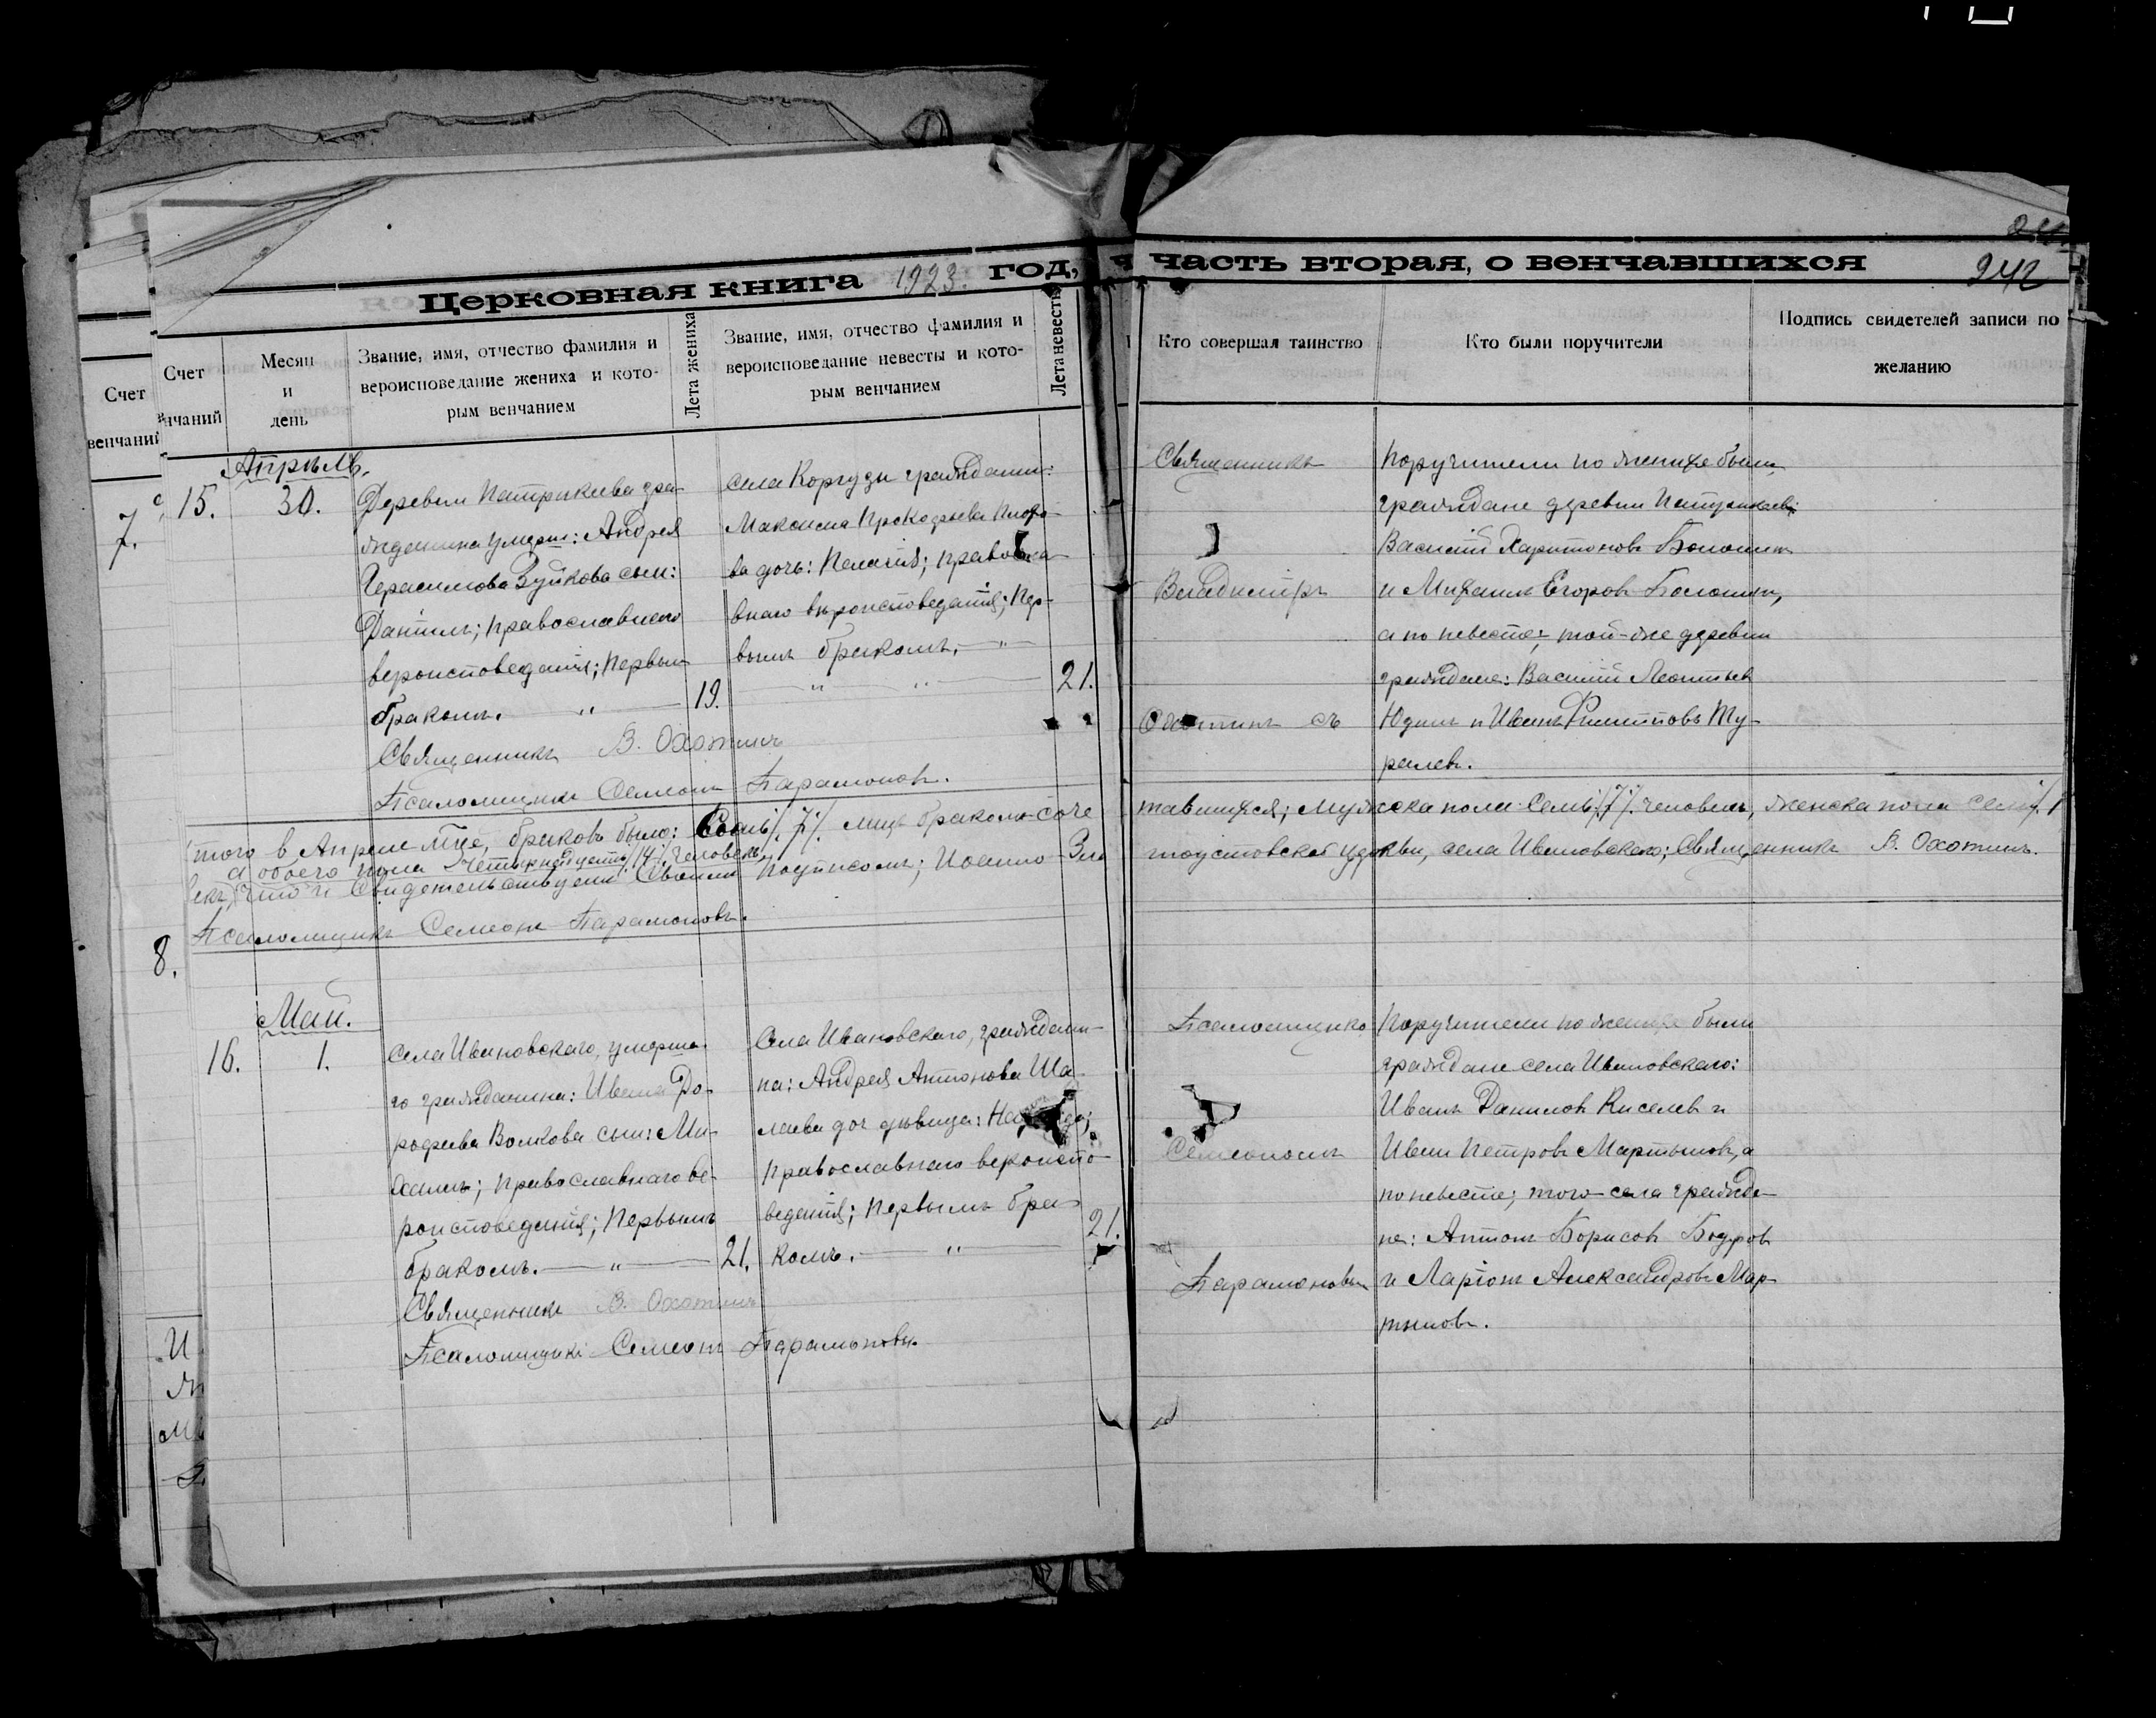 242
Церковная книга 1923. год, часть вторая, о венчавшихся
Счет венчаний
Счет
нчаний
Месяц
и
день
Звание, имя, отчество фамилия и
вероисповедание жениха и кото-
рым венчанием
Лета жениха
Звание, имя, отчество фамилия и
вероисповедание невесты и кото-
рым венчанием
Лета невесты
Кто совершал таинство
Кто были поручители
Подпись свидетелей записи по
желанию
7.
Апрель.
15.
30.
Деревни Патрикеева гра-
жданина умерш: Андрея
Герасимова Зуйкова сын:
Даніилъ; православнаго
вероисповеданія; первым
бракомъ. "
19.
Священникъ В. Охотинъ
Псаломщикъ Семеон Парамонов.
села Коргузы граждани:
Максима Прокофьева
ва дочь: Пелагія; православ
внаго вѣроисповеданія; пер-
вымъ бракомъ. "
" "
21.
Священникъ
Владимiръ
Охотинъ съ
Поручители по женихе были,
граждане деревни Патрикеев:
Василій Харитоновъ
и Михаилъ Егоровъ
а по невесте; той-же деревни
граждане: Василій Леонтьев
Юдинъ и Иванъ Филипповъ Ту-
ралев.
того в Апреле м-це, браков было: Семь /7/. лицъ браком-соче
тавшихся; мужска пола-семь /7/. человекъ, женска пола семь /.
а обоего пола четырнадцать /14/. человекъ,
что и свидетельствуем своим подписом; Иоанно-Зла
тоустовской церкви, села Ивановскаго; Священникъ В. Охотинъ.
Псаломщикъ Семеонъ Парамоновъ.
8.
Май.
16.
1.
Села Ивановскаго, умерша-
го гражданина: Ивана До-
рофеева Волкова сын: Ми-
хаилъ; православнаго ве-
роисповеданія; первымъ
бракомъ. "
21.
Священникъ В. Охотинъ
Псаломщикъ Семеонъ Парамоновъ.
Села Ивановскаго, граждани-
на: Андрея Антонова Ша-
лаева доч девица:
православнаго вероиспо-
веданія; первымъ бра-
комъ. "
21.
Псаломщико
Семеономъ
Парамоновым
Поручители по женихе были
граждане села Ивановскаго:
Иванъ Данилов Киселев и
Иван Петровъ Мартынов, а
по невесте; того-села гражда-
не: Антонъ Борисов Бодров
и Ларіонъ Александровъ Мар-
тынов.
И